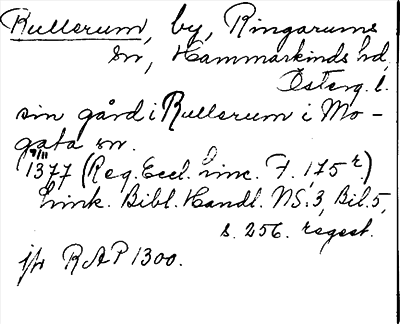 Rullerum, by, Ringarums
sn, Hammarkinds hd,
Österg. l.
sin gård i Rullerum i Mo-
gata sn.
9/11
1377 (Reg. Eccl. Linc. F. 175 r.)
Link. Bibl. Handl. NS. 3, Bil. 5,
s. 256. regest.
jfr RAP 1300.